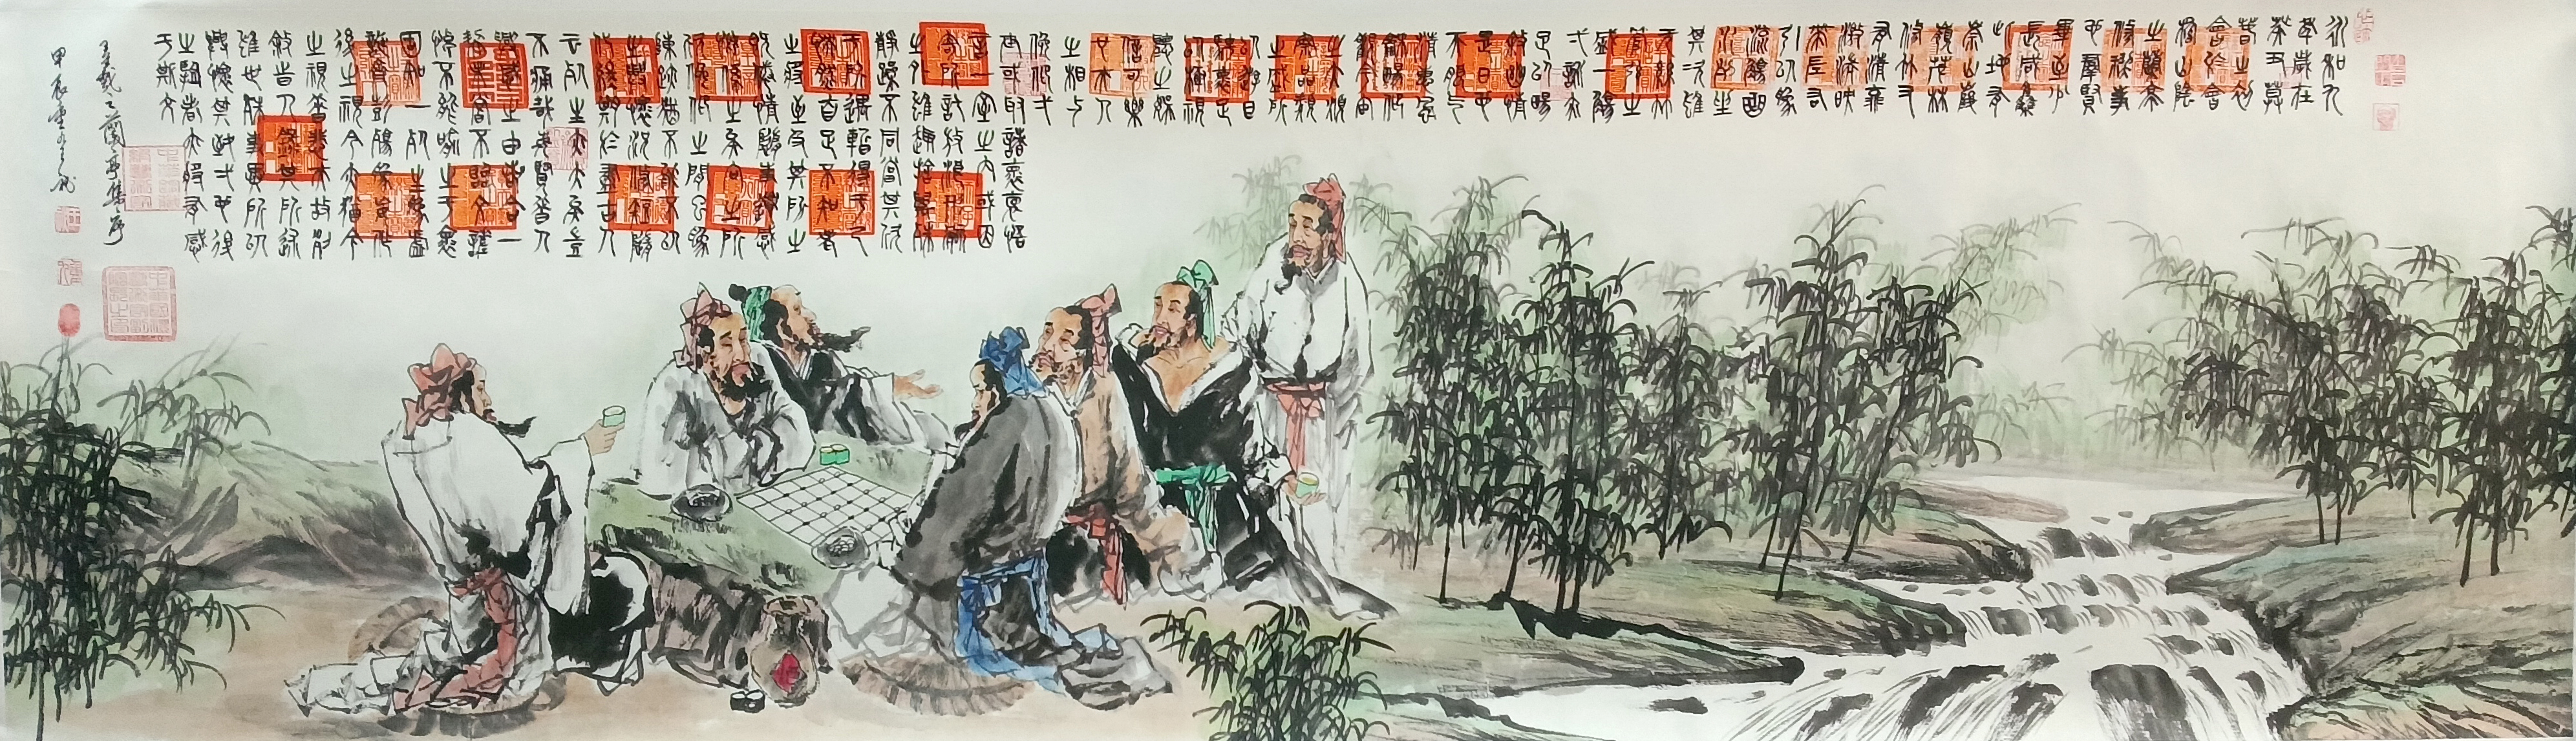 永和九
年歲在
癸丑暮
春之初
會于會
稽山陰
之蘭亭
修稧事
也羣賢
畢至少
長咸集
此地有
崇山峻
嶺茂林
修竹又
有清流
激湍映
帶左右
引以為
流觴曲
水列坐
其次雖
無絲竹
管弦之
盛一觴
一詠亦
足以暢
敘幽情
是日也
天朗氣
清惠風
和暢仰
觀宇宙
之大俯
察品類
之盛所
以遊目
騁懷足
以極視
聽之娛
信可樂
也夫人
之相與
俯仰一
世或取諸懷抱悟
言一室之內或因
寄所託放浪形骸
之外雖趣捨萬殊
靜躁不同當其欣
於所遇暫得於己
快然自足不知老
之將至及其所之
既倦情隨事遷感
慨係之矣向之所
欣俛仰之間以為
陳跡猶不能不以
之興懷況修短隨
化終期於盡古人
云死生亦大矣豈
不痛哉每覽昔人
興感之由若合一
契未嘗不臨文嗟
悼不能喻之於懷
固知一死生為虛
誕齊彭殤為妄作
後之視今亦猶今
之視昔悲夫故列
敘時人錄其所述
雖世殊事異所以
興懷其致一也後
之覽者亦將有感
於斯文
王羲之蘭亭集序
甲辰